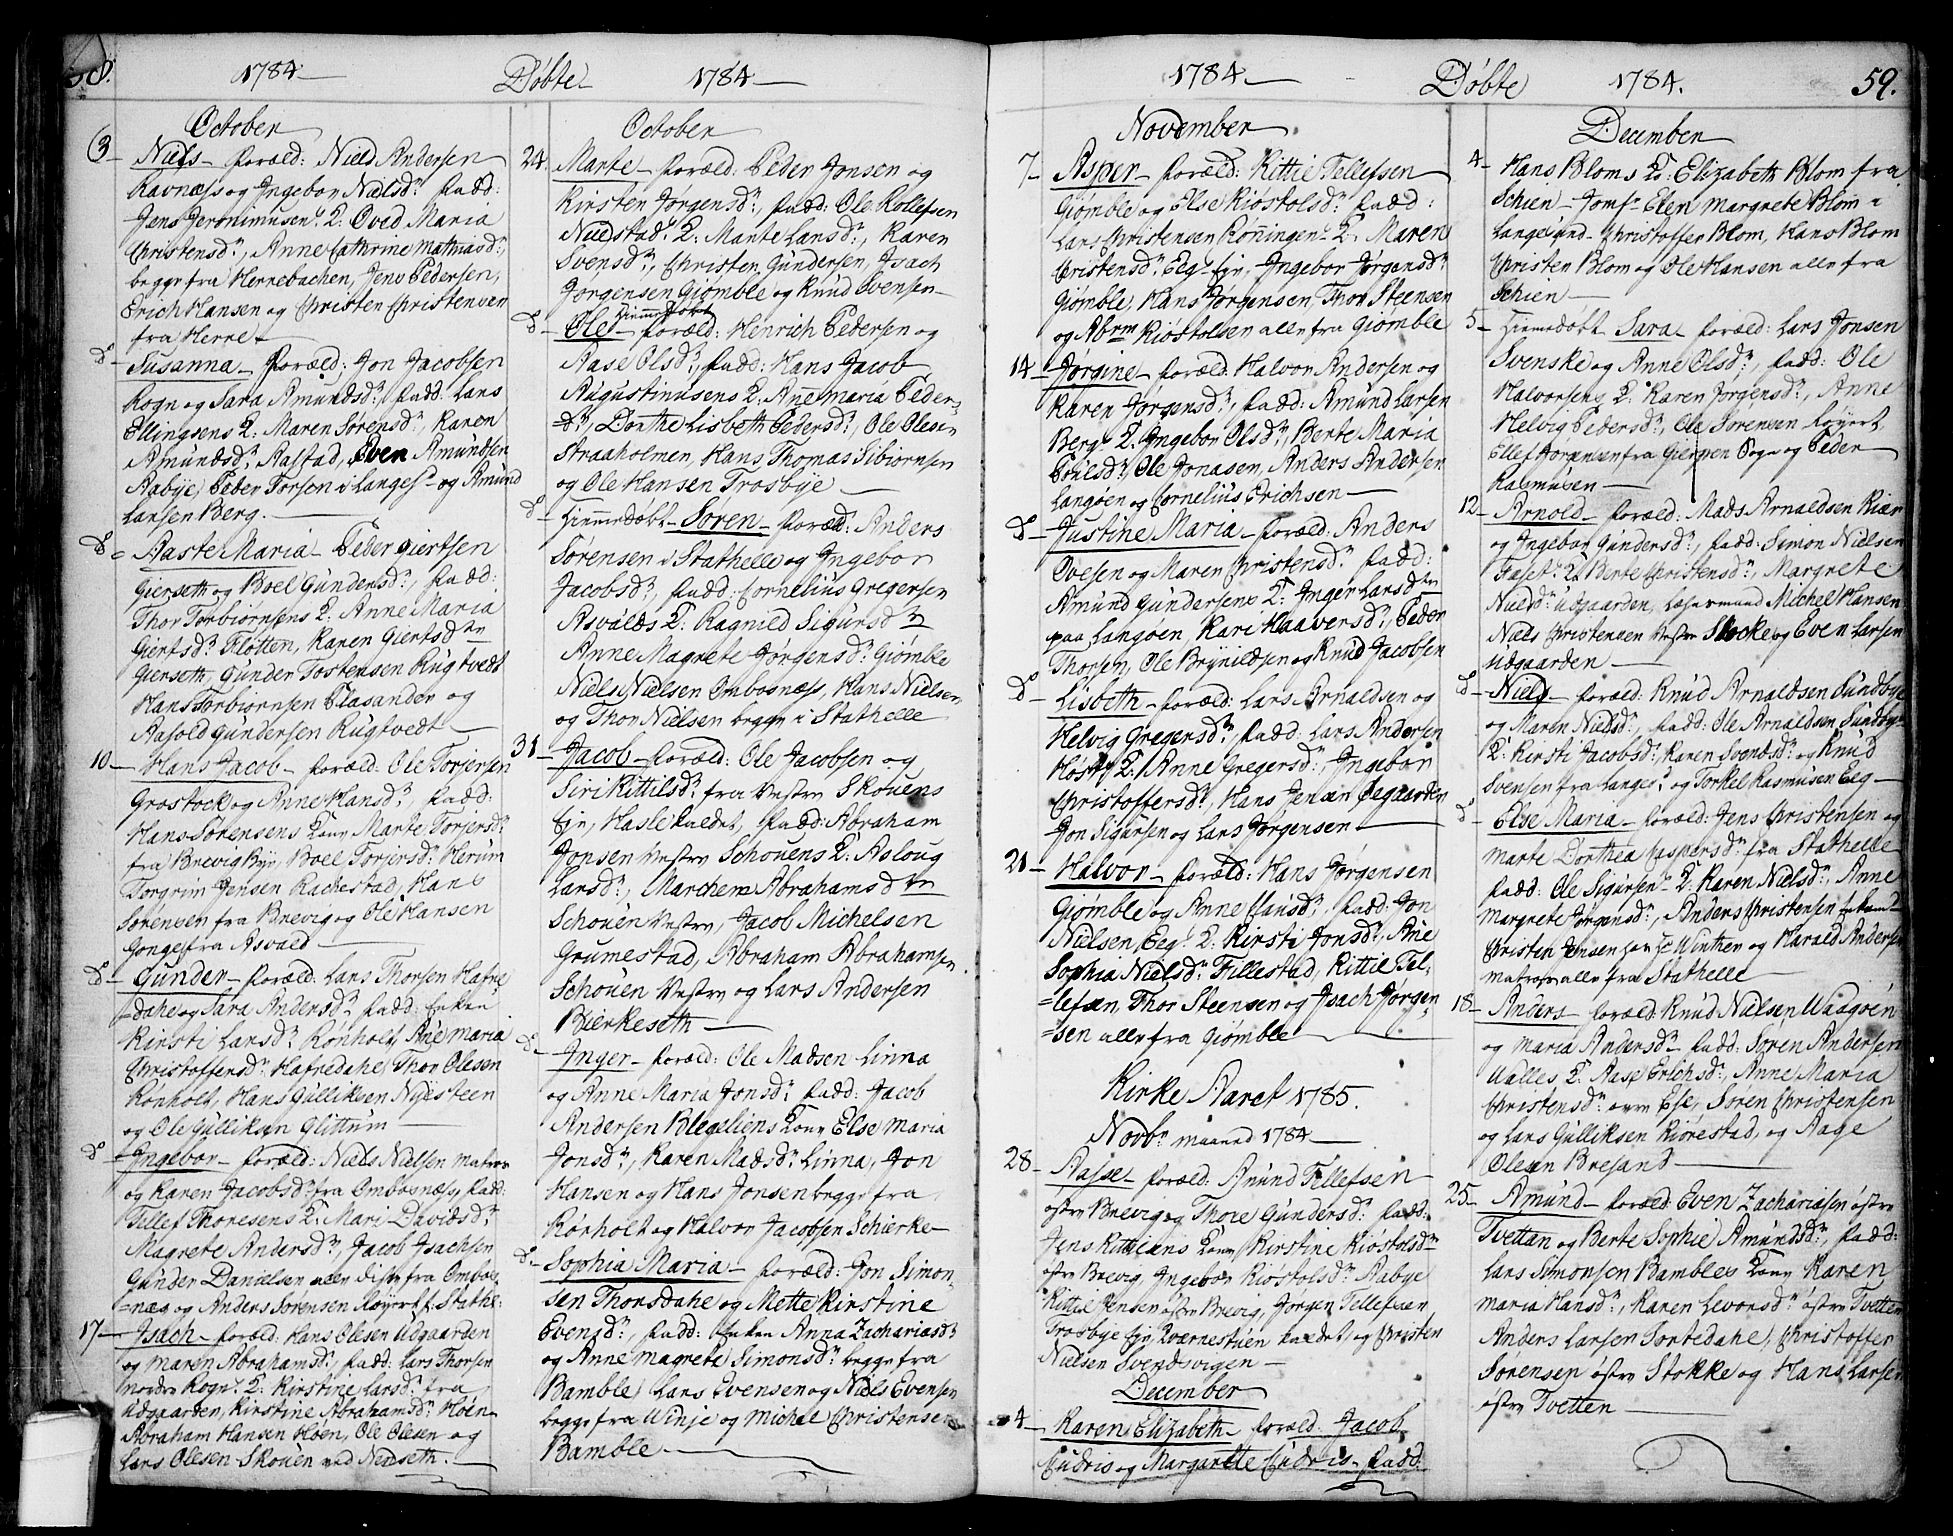 58.
1784
Døbte
1784
October
3 Niels foræld: Niels Andersen
Ravnæss og Ingebor Nielsdr. fadd:
Jens Jeronimusens Q: Oved Maria
Christensdr., Anne Cathrine Mathiasdr.,
begge fra Herrebachen, Jens Pedersen,
Erich Hansen og Christen Christensen
fra Herre
d Susanna foræld: Jon Jacobsen
Rogn og Sara Amundsdr., fadd: Lars
Ellingsens Q: Maren Sørensdr., Karen
Amundsdr. Aalstad, Even Amundsen
Aabye, Peder Torsen i Langes. og Amund
Larsen Berg.
d Aaste Maria Peder Giertsen
Gierseth og Boel Gundersdr., fadd:
Thor Torbiørnsens Q: Anne Maria
Giertsdr. Flotten, Karen Giertsdtr
Gierseth, Gunder Tostensen Rugtvedt
Hans Torbiørnsen Plasander og
Aasold Gundersen Rugtvedt
10 Hans Jacob foræld: Ole Torjersen
Grostock og Anne Hansdr., fadd:
Hans Sørensens Kone Marte Torjersdr.
fra Brevig Bye, Boel Torjersdr. Herum
Torgrim Jensen Rackestad, Hans
Sørensen fra Brevig og Ole Hansen
Gonge fra Asvald
d Gunder foræld: Lars Thorsen Hafre
dahl og Sara Andersdr. fadd: Enken
Kirsti Larsdr. Rønholt, Ane Maria
Christoffersdr. Hafredahl, Thor Olesen
Rønholt, Hans Gulliksen Nysteen
og Ole Gulliksen Glittum
d Ingebor foræld: Niels Nielsen matros
og Karen Jacobsdr. fra Ombosnæss, fadd:
Tellef Thoresens Q: Mari Davidsdr.
Magrete Andersdr., Jacob Isachsen
Gunder Danielsen alle disse fra Ombos,
=næs og Anders Sørensen Røyert f. Stathe:
17 Isach foræld: Hans Olesen Udgaarden
og Maren Abrahamsdr., fadd: Lars Thorsen
nordre Rogns Q: Kirstine Larsdr. fra
Udgaarden, Kirstine Abrahamsdr. Hoen
Abraham Hansen Hoen, Ole Olesen og
Lars Olesen Skouen ved Nenseth.
October
24 Marte foræld: Peder Jonsen og
Kirsten Jørgensdr., fadd: Ole Rollefsen
Nustads Q: Marte Larsdr., Karen
Svensdr., Christen Gundersen, Isach
Jørgensen Giømble og Knud Evensen
hiemedøbt
d Ole foræld: Henrich Pedersen og
Aase Olsdr., fadd: Hans Jacob
Augustinusens Q: Ane Maria Peders
=dr., Dorthe Lisbeth Pedersdr., Ole Olesen
Straaholmen, Hans Thomas Sibiørnsen
og Ole Hansen Trosbye
d Hiemedøbt Søren foræld: Anders
Sørensen i Stathelle og Ingebor
Jacobsdr., fadd: Cornelius Gregersen
Asvalds Q: Ragnild Sigursdtr
Anne Magrete Jørgensdr. Giømble
Niels Nielsen Ombosnæss, Hans Nielsen
og Thor Nielsen begge i Stathelle
31 Jacob foræld: Ole Jacobsen og
Siri Kittilsdr. fra Vestre Skouens
Eje, Hasle kaldet, fadd: Abraham
Jonsen Vestre Schouens Q: Asloug
Larsdr., Marchen Abrahamsdtr
Schouen Vestre, Jacob Michelsen
Grumestad, Abraham Abrahamsen
Schouen Vestre og Lars Andersen
Bierkeseth
d Inger foræld: Ole Madsen Linna
og Anne Maria Jonsdr. fadd: Jacob
Andersen Blegeliens Kone Else Maria
Jonsdr., Karen Madsdr. Linna, Jon
Hansen og Hans Jonsen begge fra
Rørholt og Halvor Jacobsen Schierke
d Sophia Maria foræld: Jon Simon,
sen Thorsdahl og Mette Kirstine
Evensdr., fadd: Enken Anna Zachariasdr.
og Anne Magrete Simonsdr. begge fra
Bamble, Lars Evensen og Niels Evensen
begge fra Winje og Michel Christensen
Bamble
1784
Døbte
1784.
59.
November
7 Asper foræld: Kittil Tellefsen
Giømble og Else Kiøstolsdr. fadd:
Lars Christensen Rønningens Q: Maren
Christensdr. Eeg Eje, Ingebor Jørgensdr.
Giømble, Hans Jørgensen, Thor Steensen
og Abrm Kiøstolsen alle fra Giømble
14 Jørgine foræld: Halvor Andersen og
Karen Jørgensdr., fadd: Amund Larsen
Bergs Q: Ingebor Olsdr., Berte Maria
Povelsdr., Ole Jonasen, Anders Andersen
Langøen og Cornelius Erichsen
d Justine Maria foræld: Anders
Ovesen og Maren Christensdr. fadd:
Amund Gundersens Q: Inger Larsdtr
paa Langøen, Kari Haaversdr., Peder
Thorsen, Ole Brynildsen og Knud Jacobsen
d Lisbeth foræld: Lars Arnaldsen og
Helvig Gregersdr. fadd: Lars Andersen
Høsts Q: Anne Gregersdr., Ingebor
Christoffersdr., Hans Jensen Øegaarden
Jon Sigursen og Lars Jørgensen
21 Halvor foræld: Hans Jørgensen
Giømble og Anne Clausdr., fadd: Jon
Nielsen Eegs Q: Kirsti Jonsdr., Ane
Sophia Nielsdr. Fillestad, Kittil Tel,
=lefsen, Thor Steensen og Isach Jørgen,
=sen alle fra Giømble
Kirke Aaret 1785.
Novbr. maaned 1784
28 Aasse foræld: Amund Tellefsen
østre Brevig og Thore Gundersdr. fadd:
Jens Kittilsens Kone Kirstine Kiøstolsdr.
østre Brevig, Ingebor Kiøstolsdr. Aabye
Kittil Jensen østre Brevig, Jørgen Tellefsen
Trosbye Eje, Kværnestuen kaldet og Christen
Nielsen Svendsvigen
December
4 Karen Elizabeth foræld: Jacob
Cudris og Margarethe Cudris fadd:
December
4 Hans Bloms Q: Elizabeth Blom fra
Schien Jomfr. Elen Margrete Blom i
Langesund Christoffer Blom, Hans Blom
Christen Blom og Ole Hansen alle fra
Schien
5 Hiemedøbt Sara foræld: Lars Jonsen
Svenske og Anne Olsdr., fadd: Ole
Halvorsens Q: Karen Jørgensdr., Anne
Helvig Pedersdr., Ole Sørensen Røyert,
Ellef Jorgensen fra Gierpen Sogn og Peder
Rasmusen
12 Arnold foræld: Mads Arnaldsen Kiær
og Ingebor Gundersdr., fadd: Simon Nielsen
Fasets Q: Berte Christensdr., Margrete
Nielsdr. Udgaarden, Michel Hansen
Niels Christensen Vestre Stocke og Even Larsen
Udgaarden
d Niels foræld: Knud Arnaldsen Sundbye
og Maren Nielsdr., fadd: Ole Arnaldsen Sundbyes
Q: Kirsti Jacobsdr., Karen Svendsdr. og Knud
Svensen fra Langes. og Torkel Rasmusen Eeg
d Else Maria foræld: Jens Christensen og
Marte Dorthea Caspersdr. fra Stathelle
fadd: Ole Sigursens Q: Karen Nielsdr., Anne
Margrete Jørgensdr., Anders Christensen
Christen Jensen Winther og Harald Andersen
matroser alle fra Stathelle
18 Anders foræld: Knud Nielsen Waagøen
og Maria Andersdr. fadd: Søren Andersen
Valles Q: Aase Erichsdr., Anne Maria
Christensdr. øvre Esse, Søren Christensen
og Lars Gulliksen Kiørestad, og Aage
Olesen Bresand
25 Amund foræld: Even Zachariasen østre
Tvetten og Berte Sophie Amundsdr., fadd:
Lars Simonsen Bambles Kone Karen
Maria Hansdr., Karen Levorsdr. østre Tvetten
Anders Larsen Sortedahl, Christoffer
Sørensen østre Stokke og Hans Larsen
østre Tvetten